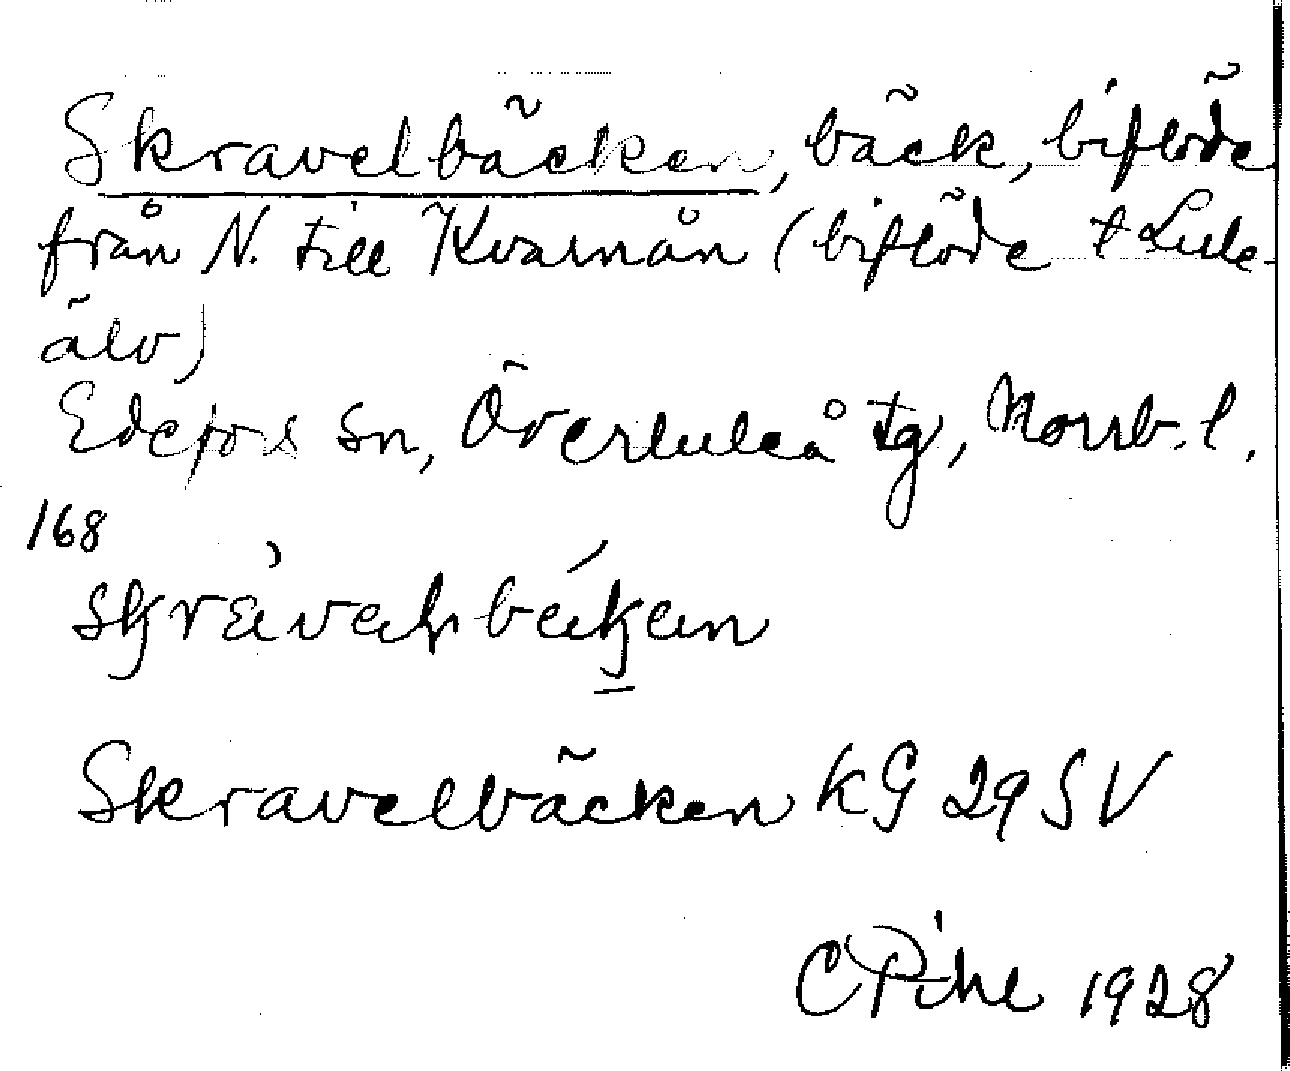 Skravelbäcken, bäck, biflöde
från N. till Kvarnån (biflöde t Lule
älv)
Edefors sn, Överluleå tg, Norrb. l.
168
Skravelbäcken KG 29 SV
C Pihl 1928